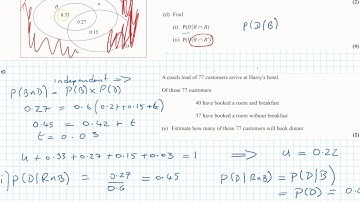 B
0.33
0.27
0.15
(d) Find
(i) P(D|R ∩ B)
(ii) P(D|R ∩ B')
P(D/B)
(2)
(4)
A coach load of 77 customers arrive at Harry's hotel.
Of these 77 customers
40 have booked a room and breakfast
37 have booked a room without breakfast
(e) Estimate how many of these 77 customers will book dinner.
(2)
independent =>
P(B∩D) = P(B) x P(D)
0.27 = 0.6(0.27+0.15+t)
0.45 = 0.42 + t
t = 0.03
u + 0.33 + 0.27 + 0.15 + 0.03 = 1 => u = 0.22
i) P(D|R∩B) = 0.27/0.6 = 0.45
P(D|R∩B) = P(D|B)
= P(D) = 0.